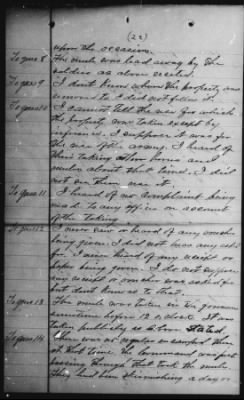 (22)
upon the occasion.
To ques 8 The mule was led away by the
soldier as above stated.
To ques 9 I dont know where the property was
removed to I did not follow it.
To ques 10 I cannot tell the use for which
the property was taken except by
inference. I suppose it was for
the use of the army. I heard of
their taking other horses and
mules about that time. I did
not see them use it.
To ques 11. I heard of no complaint being
made to any officer on account
of the taking.
To ques 12 I never saw or heard of any voucher
being given. I did not hear any asked
for. I never heard of any receipt or
being given. I do not suppose
any receipt or voucher was asked for
but dont know as to that.
To ques 13 The mule was taken in the
sometime before 12 o,clock. It was
taken publicly as above stated.
To ques 14 There was no regular encampment there
at that time the command was just
passing through that took the mule.
They had been skirmishing a day or